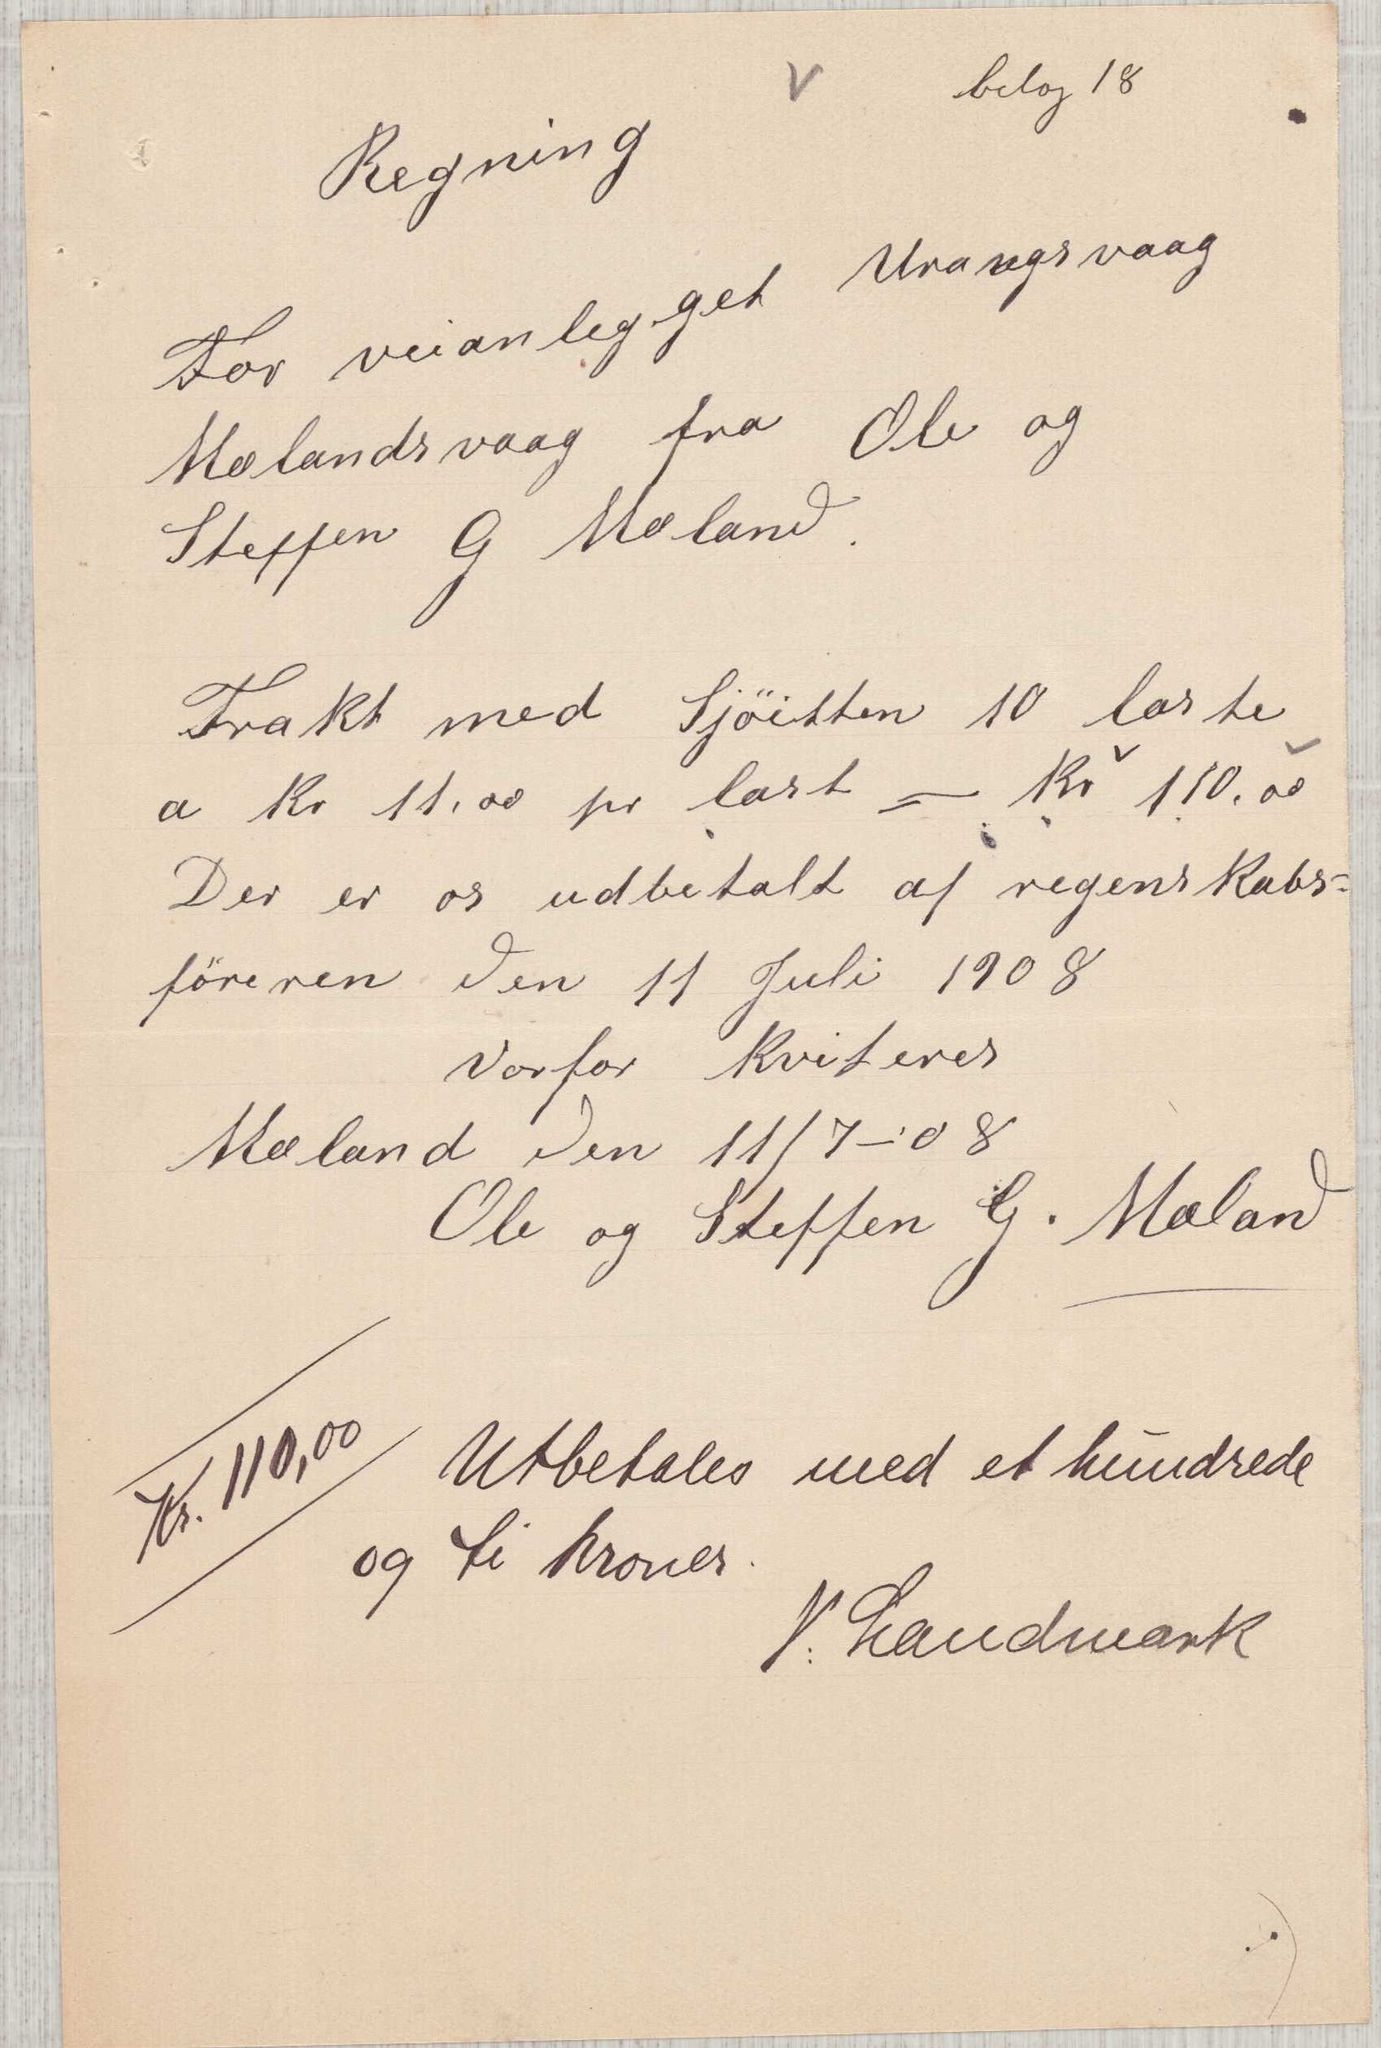 V
belag 18
Regning
For veianlegget Urangsvaag
Mælandsvaag fra Ole og
Steffen G Mæland.
Frakt med Sjöitten 10 laste
a Kr 11.00 pr last = Kr 110.00
Der er os udbetalt af regenskabs=
föreren den 11 Juli 1908
vorfor Kviteres
Mæland den 11/7-08
Ole og Steffen G. Mæland
Kr. 110,00
Utbetales med et hundrede
og ti kroner.
N. Landmark